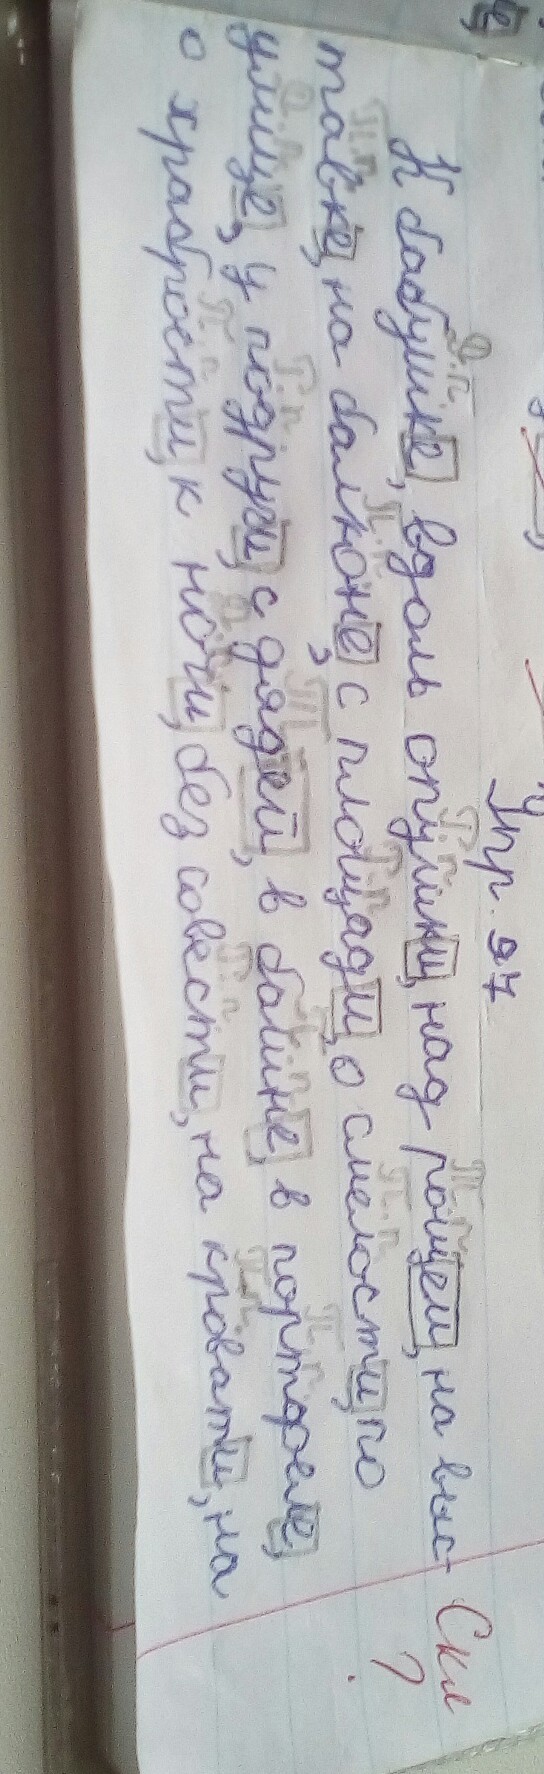 Упр. 97
К бабушке, вдоль опушки, над рощей, на выс-
тавке, на балконе, с площади, о смелости, по
улице, у подруги, с дядей, в башне, в портфеле,
о храбрости, к ночи, без совести, на кровати, на
Скл
?